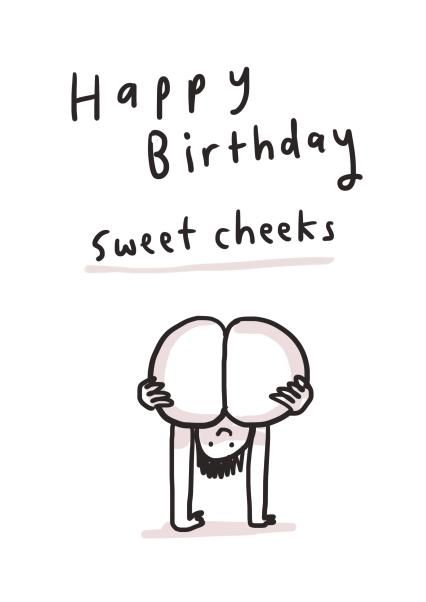 Happy
Birthday
sweet cheeks